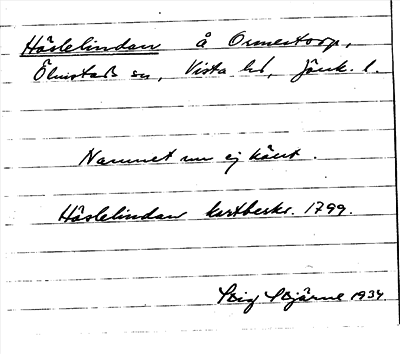 Häslelindan å Ormestorp,
Ölmstad sn, Vista hd, Jönk. l.
Namnet nu ej känt.
Häslelindan kartbeskr. 1799.
Stig Stjärne 1934